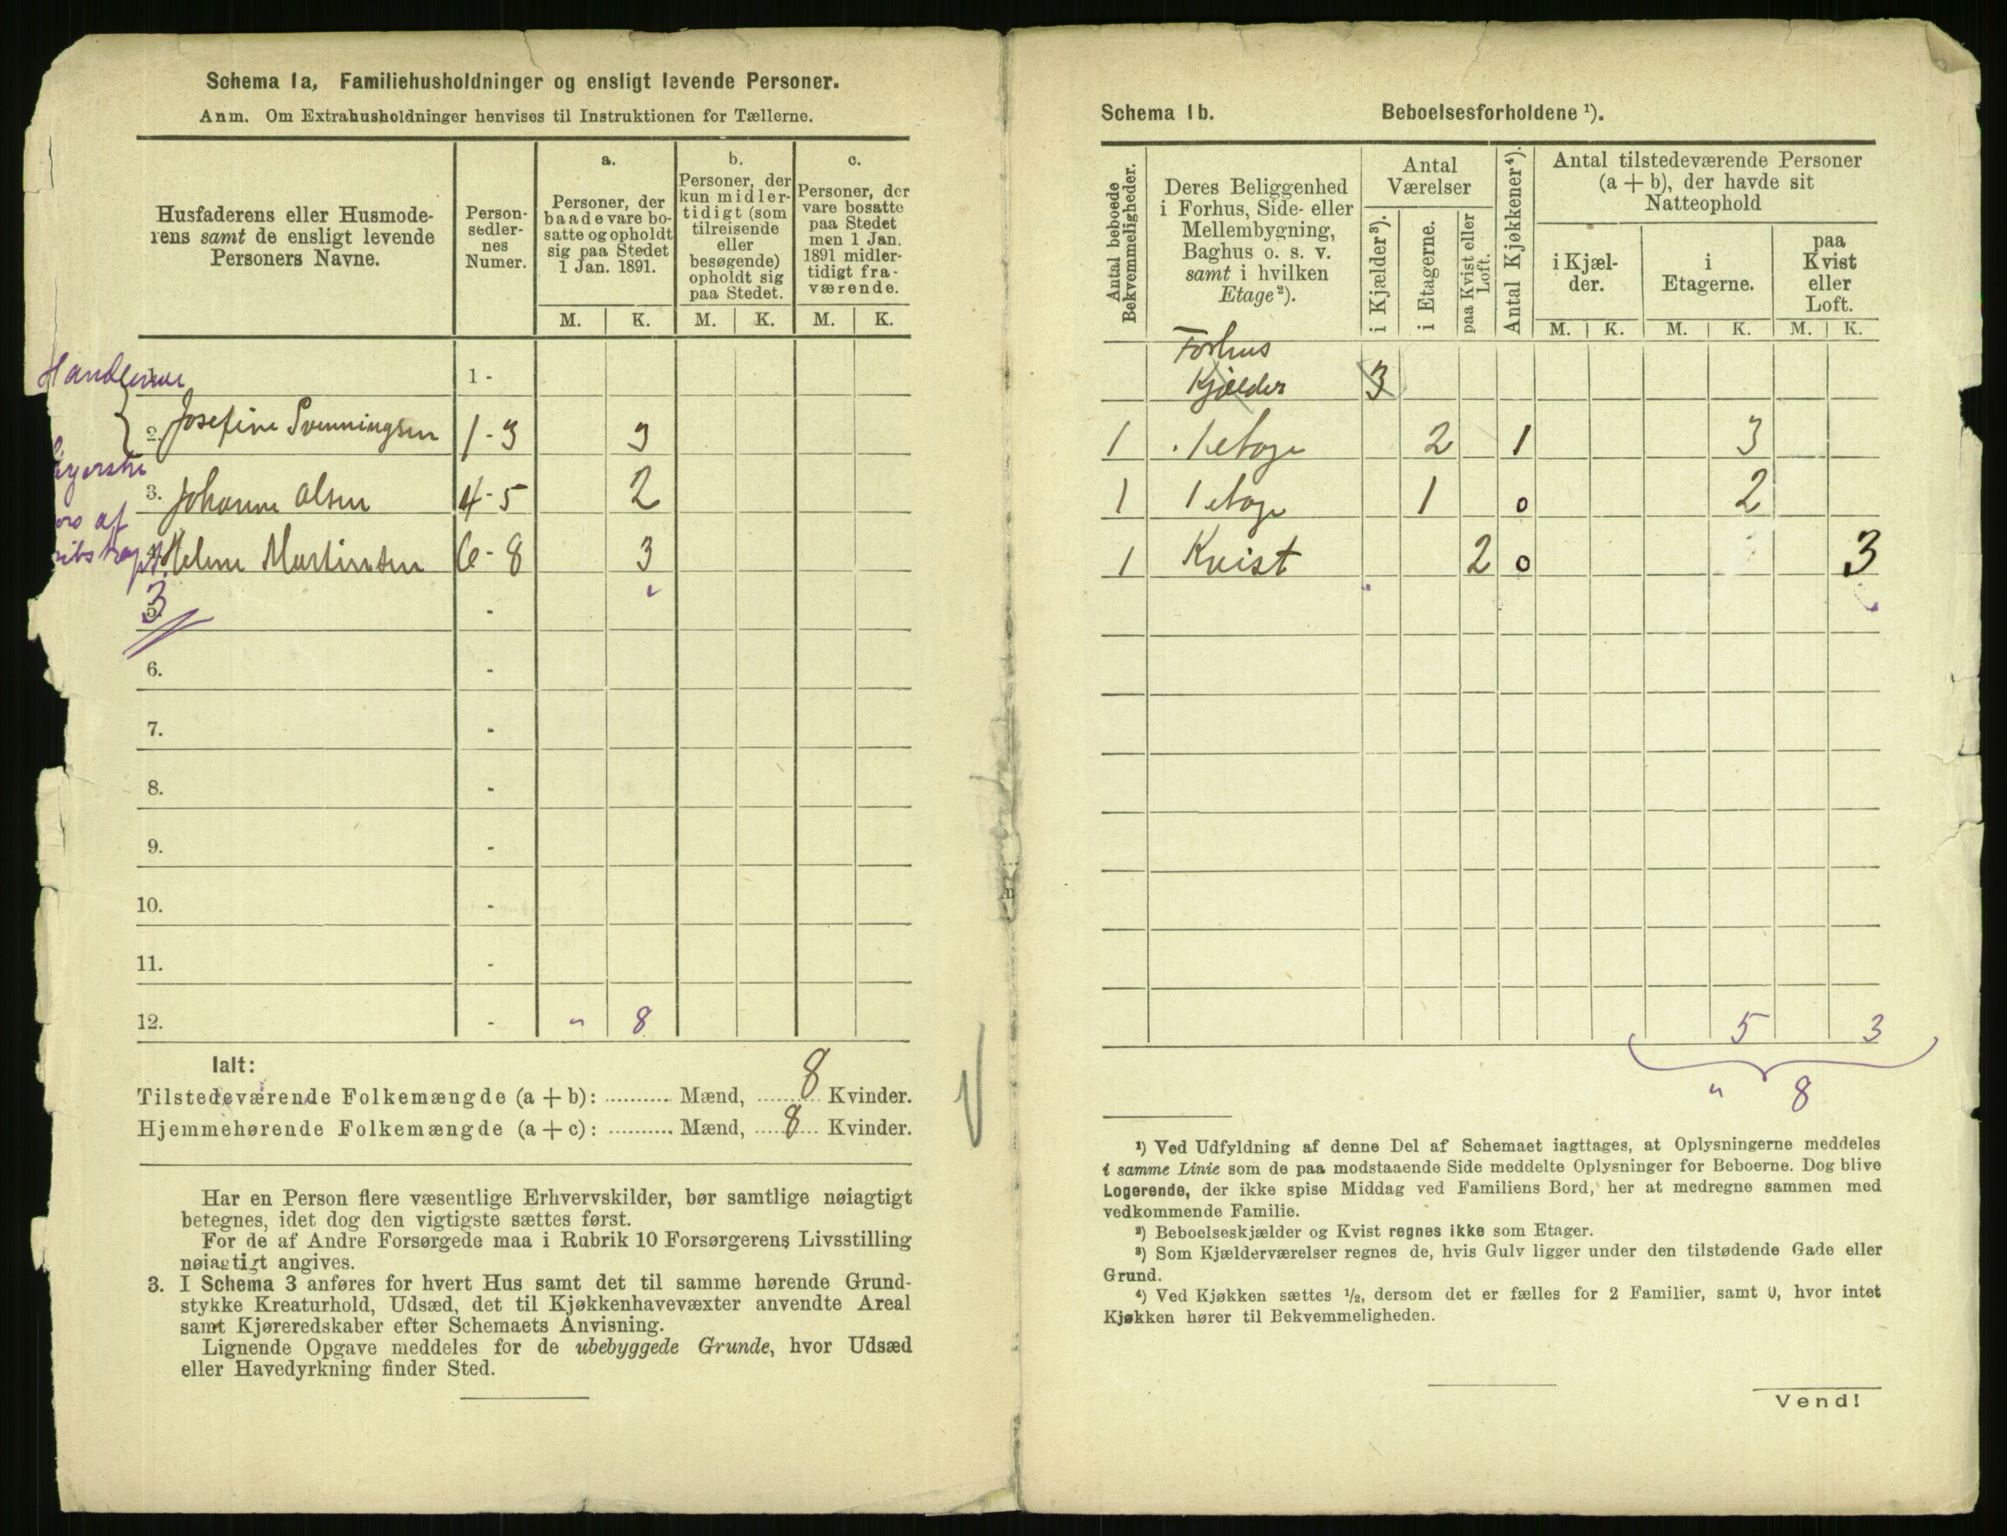 Schema 1a, Familiehusholdninger og ensligt levende Personer.
Anm. Om Extrahusholdninger henvises til Instruktionen for Tællerne.
Husfaderens eller Husmode-
rens samt de ensligt levende
Personers Navne.
Person-
sedler-
nes
Numer.
a.
Personer, der
baade vare bo-
satte og opholdt
sig paa Stedet
1 Jan. 1891.
b.
Personer, der
kun midler-
tidigt (som
tilreisende
eller
besøgende)
opholdt sig
paa Stedet.
c.
Personer, der
vare bosatte
paa Stedet
men 1 Jan.
1891 midler-
tidigt fra-
værende.
M. K. M. K. M. K.
1 -
2. Josefine Svenningsen 1-3 3
3. Johanne Olsen 4-5 2
Helene Martinsen 6-8 3
3
5. -
6. -
7. -
8. -
9. -
10. -
11. -
12. - " 8
Ialt:
Tilstedeværende Folkemængde (a + b): ........... Mænd, 8 Kvinder.
Hjemmehørende Folkemængde (a + c): ........... Mænd, 8 Kvinder.
Har en Person flere væsentlige Erhvervskilder, bør samtlige nøiagtigt
betegnes, idet dog den vigtigste sættes først.
For de af Andre Forsørgede maa i Rubrik 10 Forsørgerens Livsstilling
nøiagtigt angives.
3. I Schema 3 anføres for hvert Hus samt det til samme hørende Grund-
stykke Kreaturhold, Udsæd, det til Kjøkkenhavevæxter anvendte Areal
samt Kjøreredskaber efter Schemaets Anvisning.
Lignende Opgave meddeles for de ubebyggede Grunde, hvor Udsæd
eller Havedyrkning finder Sted.
Schema 1b. Beboelsesforholdene ¹).
Antal beboede
Bekvemmeligheder.
Deres Beliggenhed
i Forhus, Side- eller
Mellembygning,
Baghus o. s. v.
samt i hvilken
Etage²).
Antal
Værelser
i Kjælder³).
i Etagerne.
paa Kvist eller
Loft.
Antal Kjøkkener⁴).
Antal tilstedeværende Personer
(a + b), der havde sit
Natteophold
i Kjæl-
der.
i
Etagerne.
paa
Kvist
eller
Loft.
M. K. M. K. M. K.
Forhus
Kjælder 3
1 1 etage 2 1 3
1 1 etage 1 0 2
1 Kvist 2 0 3
5 3
" 8
¹) Ved Udfyldning af denne Del af Schemaet iagttages, at Oplysningerne meddeles
i samme Linie som de paa modstaaende Side meddelte Oplysninger for Beboerne. Dog blive
Logerende, der ikke spise Middag ved Familiens Bord, her at medregne sammen med
vedkommende Familie.
²) Beboelseskjælder og Kvist regnes ikke som Etager.
³) Som Kjælderværelser regnes de, hvis Gulv ligger under den tilstødende Gade eller
Grund.
⁴) Ved Kjøkken sættes ½, dersom det er fælles for 2 Familier, samt 0, hvor intet
Kjøkken hører til Bekvemmeligheden.
Vend!